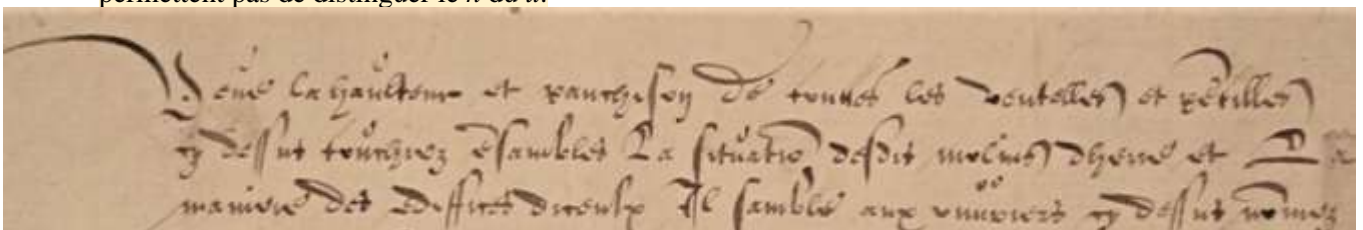 permettent pas de distinguer le n du u.
Veue la haulteur et ranchison de touttes les ventelles et
cy dessus touchiez ensambles La situatio desdis molins dhene et La
maniere des edeffices diceulx Il samble aux ouvriers cy dessus nomez